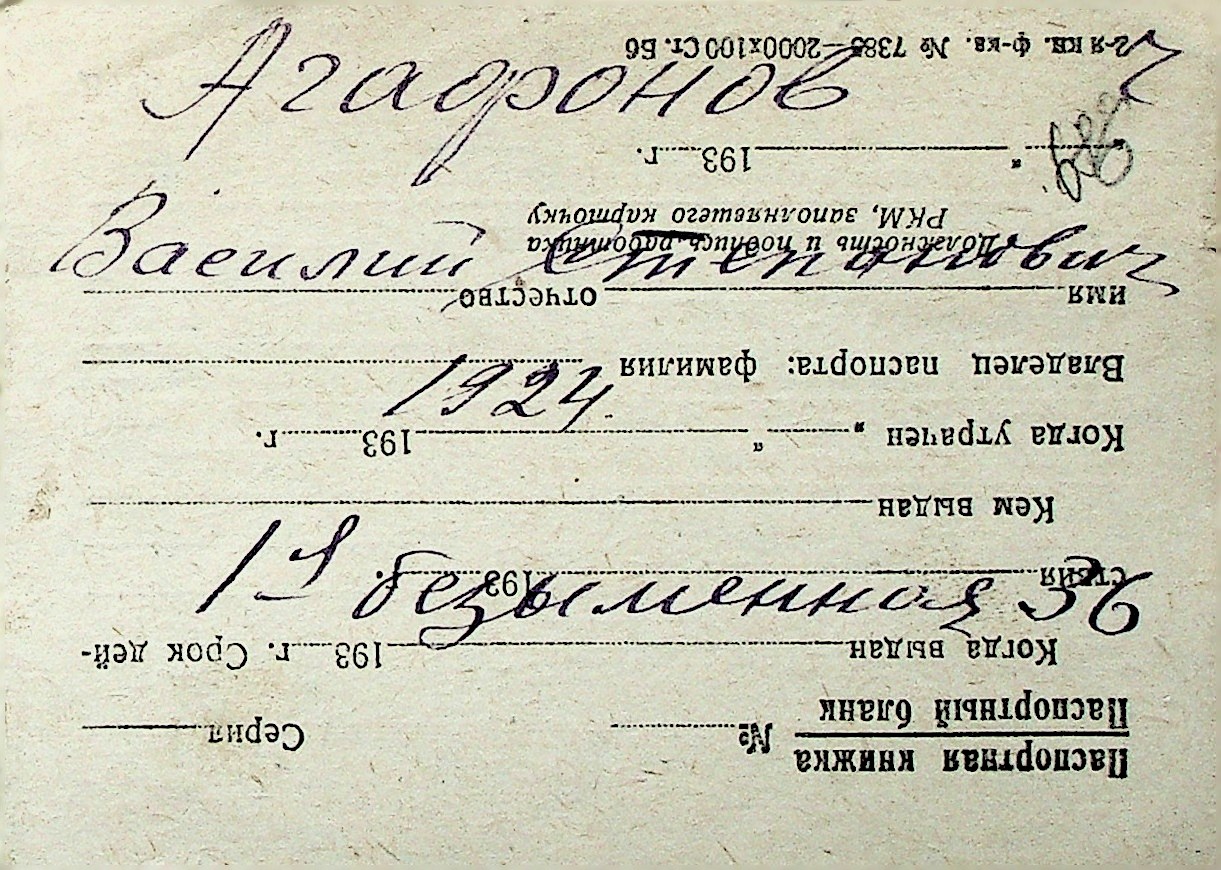 Агафонов
Василий Степанович
1924
1я безыменная 36
Паспортная книжка
Паспортный бланк № Серия
Когда выдан 193 г. Срок дей-
ствия 193 г.
Кем выдан
Когда утрачен „ “ 193 г.
Владелец паспорта: фамилия
имя отчество
Должность и подпись работника
РКМ, заполнявшего карточку
„ “ 193 г.
2-я кв. ф-ка. № 7385—2000х100 Ст. Б6